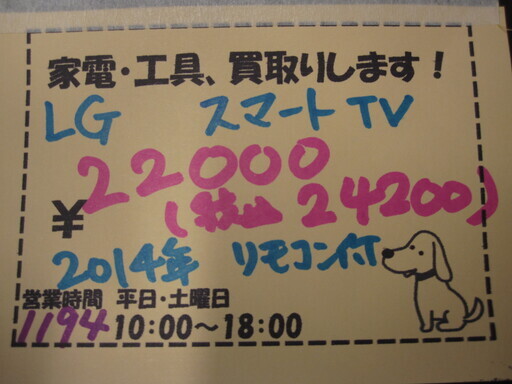 家電・工具、買取りします!
LG スマートTV
¥22000
(税込 24200)
2014年 リモコン付
営業時間 平日・土曜日
1194 10:00～18:00